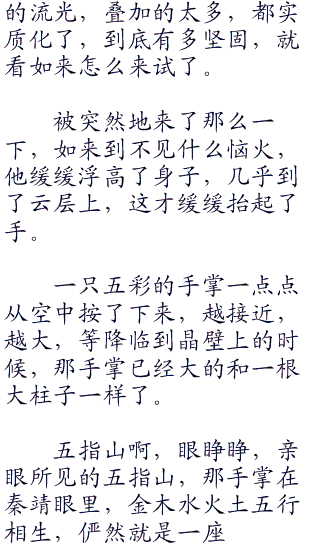 的流光，叠加的太多，都实
质化了，到底有多坚固，就
看如来怎么来试了。
被突然地来了那么一
下，如来到不见什么恼火，
他缓缓浮高了身子，几乎到
了云层上，这才缓缓抬起了
手。
一只五彩的手掌一点点
从空中按了下来，越接近，
越大，等降临到晶壁上的时
候，那手掌已经大的和一根
大柱子一样了。
五指山啊，眼睁睁，亲
眼所见的五指山，那手掌在
秦靖眼里，金木水火土五行
相生，俨然就是一座